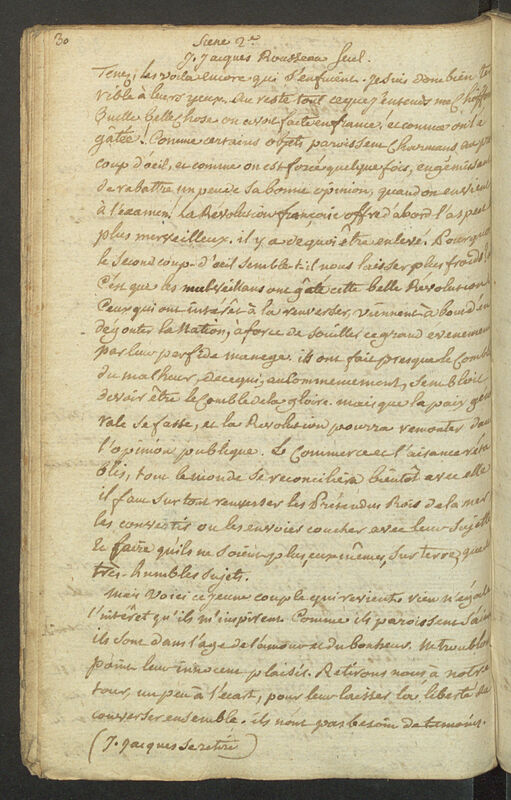 30
Scene 2e
J. Jacques Rousseau seul.
Tenez, les voilà encore qui s'enfuient. je suis donc bien ter
rible à leurs yeux. Au reste tout ce que j'entends me
Quelle belle chose on avoit faite en france! et comme on l'a
gâtée! Comme certains objets paroissent charmans au pre
coup d'oeil, et comme on est forcé quelque fois, en gémissant
de rabattre un peu de sa bonne opinion, quand on en vient
à l'examen! La Révolution françoise offre d'abord l'aspect
plus merveilleux. il y a de quoi être enlevé. Pourquoi
le second coup-d'oeil semble t-il nous laisser plus froids?
C'est que des malveillans ont gâté cette belle Révolution
Ceux qui ont intérêt à la renverser, viennent à bout d'en
degouter la Nation, a force de souiller ce grand evenement
par leur perfide manege. ils ont fait presque le Comble
du malheur, de ce qui, au Commencement, sembloit
devoir être le Comble de la gloire. mais que la paix gen
rale se fasse, et la Revolution pourra remonter dans
l'opinion publique. Le Commerce et l'aisance réta
blis, tout le monde se reconciliera bientôt avec elle
il faut sur tout renverser les Prétendus Rois de la mer
les convertir ou les envoier coucher avec leur
Et faire qu'ils ne soient plus, eux mêmes, sur terre, que
très-humbles sujets.
Mais Voici ce jeune couple qui revient. rien n'égale
l'intérêt qu'ils m'inspirent. Comme ils paroissent s'aimer
ils sont dans l'âge de l'amour et du bonheur. Ne troublons
point leur innocent plaisir. Retirons nous à notre
tour, un peu à l'écart, pour leur laisser la liberté de
converser ensemble. ils n'ont pas besoin de temoins.
(J. Jacques se retire)